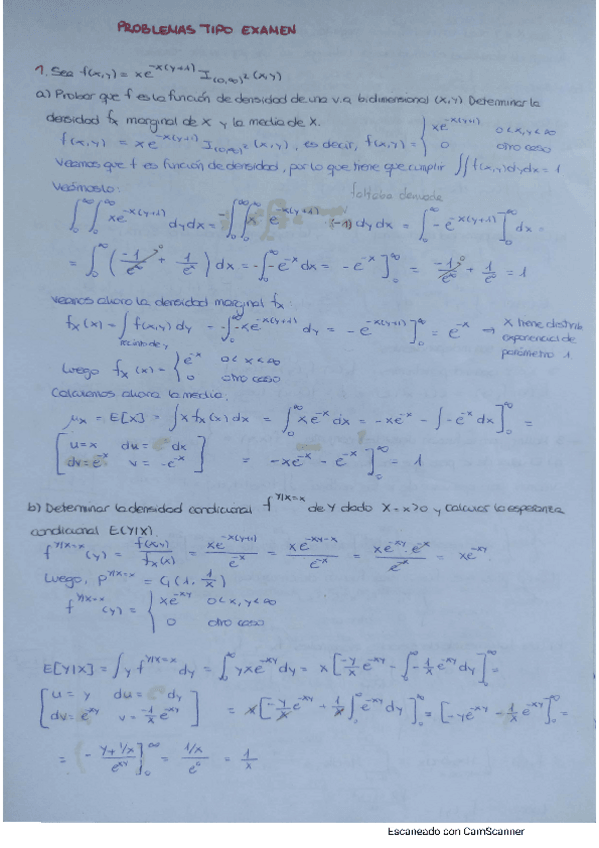 PROBLEMAS TIPO EXAMEN
1. Sea f(x,y) = xe^{-x(y+1)} I_{(0,∞)^2}(x,y)
a) Probar que f es la función de densidad de una v.a. bidimensional (X,Y). Determinar la
densidad f_X marginal de X y la media de X.
f(x,y) = xe^{-x(y+1)} I_{(0,∞)^2}(x,y), es decir, f(x,y) = { xe^{-x(y+1)} 0<x,y<∞
0 otro caso
Veamos que f es función de densidad, por lo que tiene que cumplir ∫∫ f(x,y) dy dx = 1
Veámoslo: faltaba derivada
∫_0^∞ ∫_0^∞ xe^{-x(y+1)} dy dx = -∫_0^∞ ∫_0^∞ x e^{-x(y+1)} (-1) dy dx = ∫_0^∞ -e^{-x(y+1)} ]_0^∞ dx =
= ∫_0^∞ ( -1/e^∞ + 1/e^x ) dx = -∫_0^∞ -e^{-x} dx = -e^{-x} ]_0^∞ = -1/e^∞ + 1/e^0 = 1
Veamos ahora la densidad marginal f_X:
f_X(x) = ∫ f(x,y) dy = -∫_0^∞ -xe^{-x(y+1)} dy = -e^{-x(y+1)} ]_0^∞ = e^{-x} → X tiene distrib.
recinto de y exponencial de
Luego f_X(x) = { e^{-x} 0<x<∞ parámetro 1
0 otro caso
Calculamos ahora la media:
μ_X = E[X] = ∫ x f_X(x) dx = ∫_0^∞ xe^{-x} dx = -xe^{-x} - ∫ -e^{-x} dx ]_0^∞ =
[ u=x du= dx
dv=e^{-x} v= -e^{-x} ] = -xe^{-x} - e^{-x} ]_0^∞ = 1
b) Determinar la densidad condicional f^{Y|X=x} de Y dado X=x>0 y calcular la esperanza
condicional E(Y|X).
f^{Y|X=x}(y) = f(x,y)/f_X(x) = xe^{-x(y+1)}/e^{-x} = xe^{-xy-x}/e^{-x} = xe^{-xy}·e^{-x}/e^{-x} = xe^{-xy}
Luego, P^{Y|X=x} = G(1, 1/x)
f^{Y|X=x}(y) = { xe^{-xy} 0<x,y<∞
0 otro caso
E[Y|X] = ∫ y f^{Y|X=x} dy = ∫_0^∞ yxe^{-xy} dy = x [ -y/x e^{-xy} - ∫_0^∞ -1/x e^{-xy} dy ]_0^∞ =
[ u = y du = dy
dv = e^{-xy} v = -1/x e^{-xy} ] = x [ -y/x e^{-xy} + 1/x ∫_0^∞ e^{-xy} dy ]_0^∞ = [ -ye^{-xy} - 1/x e^{-xy} ]_0^∞ =
= - (y+1/x)/e^{xy} ]_0^∞ = (1/x)/e^0 = 1/x
Escaneado con CamScanner